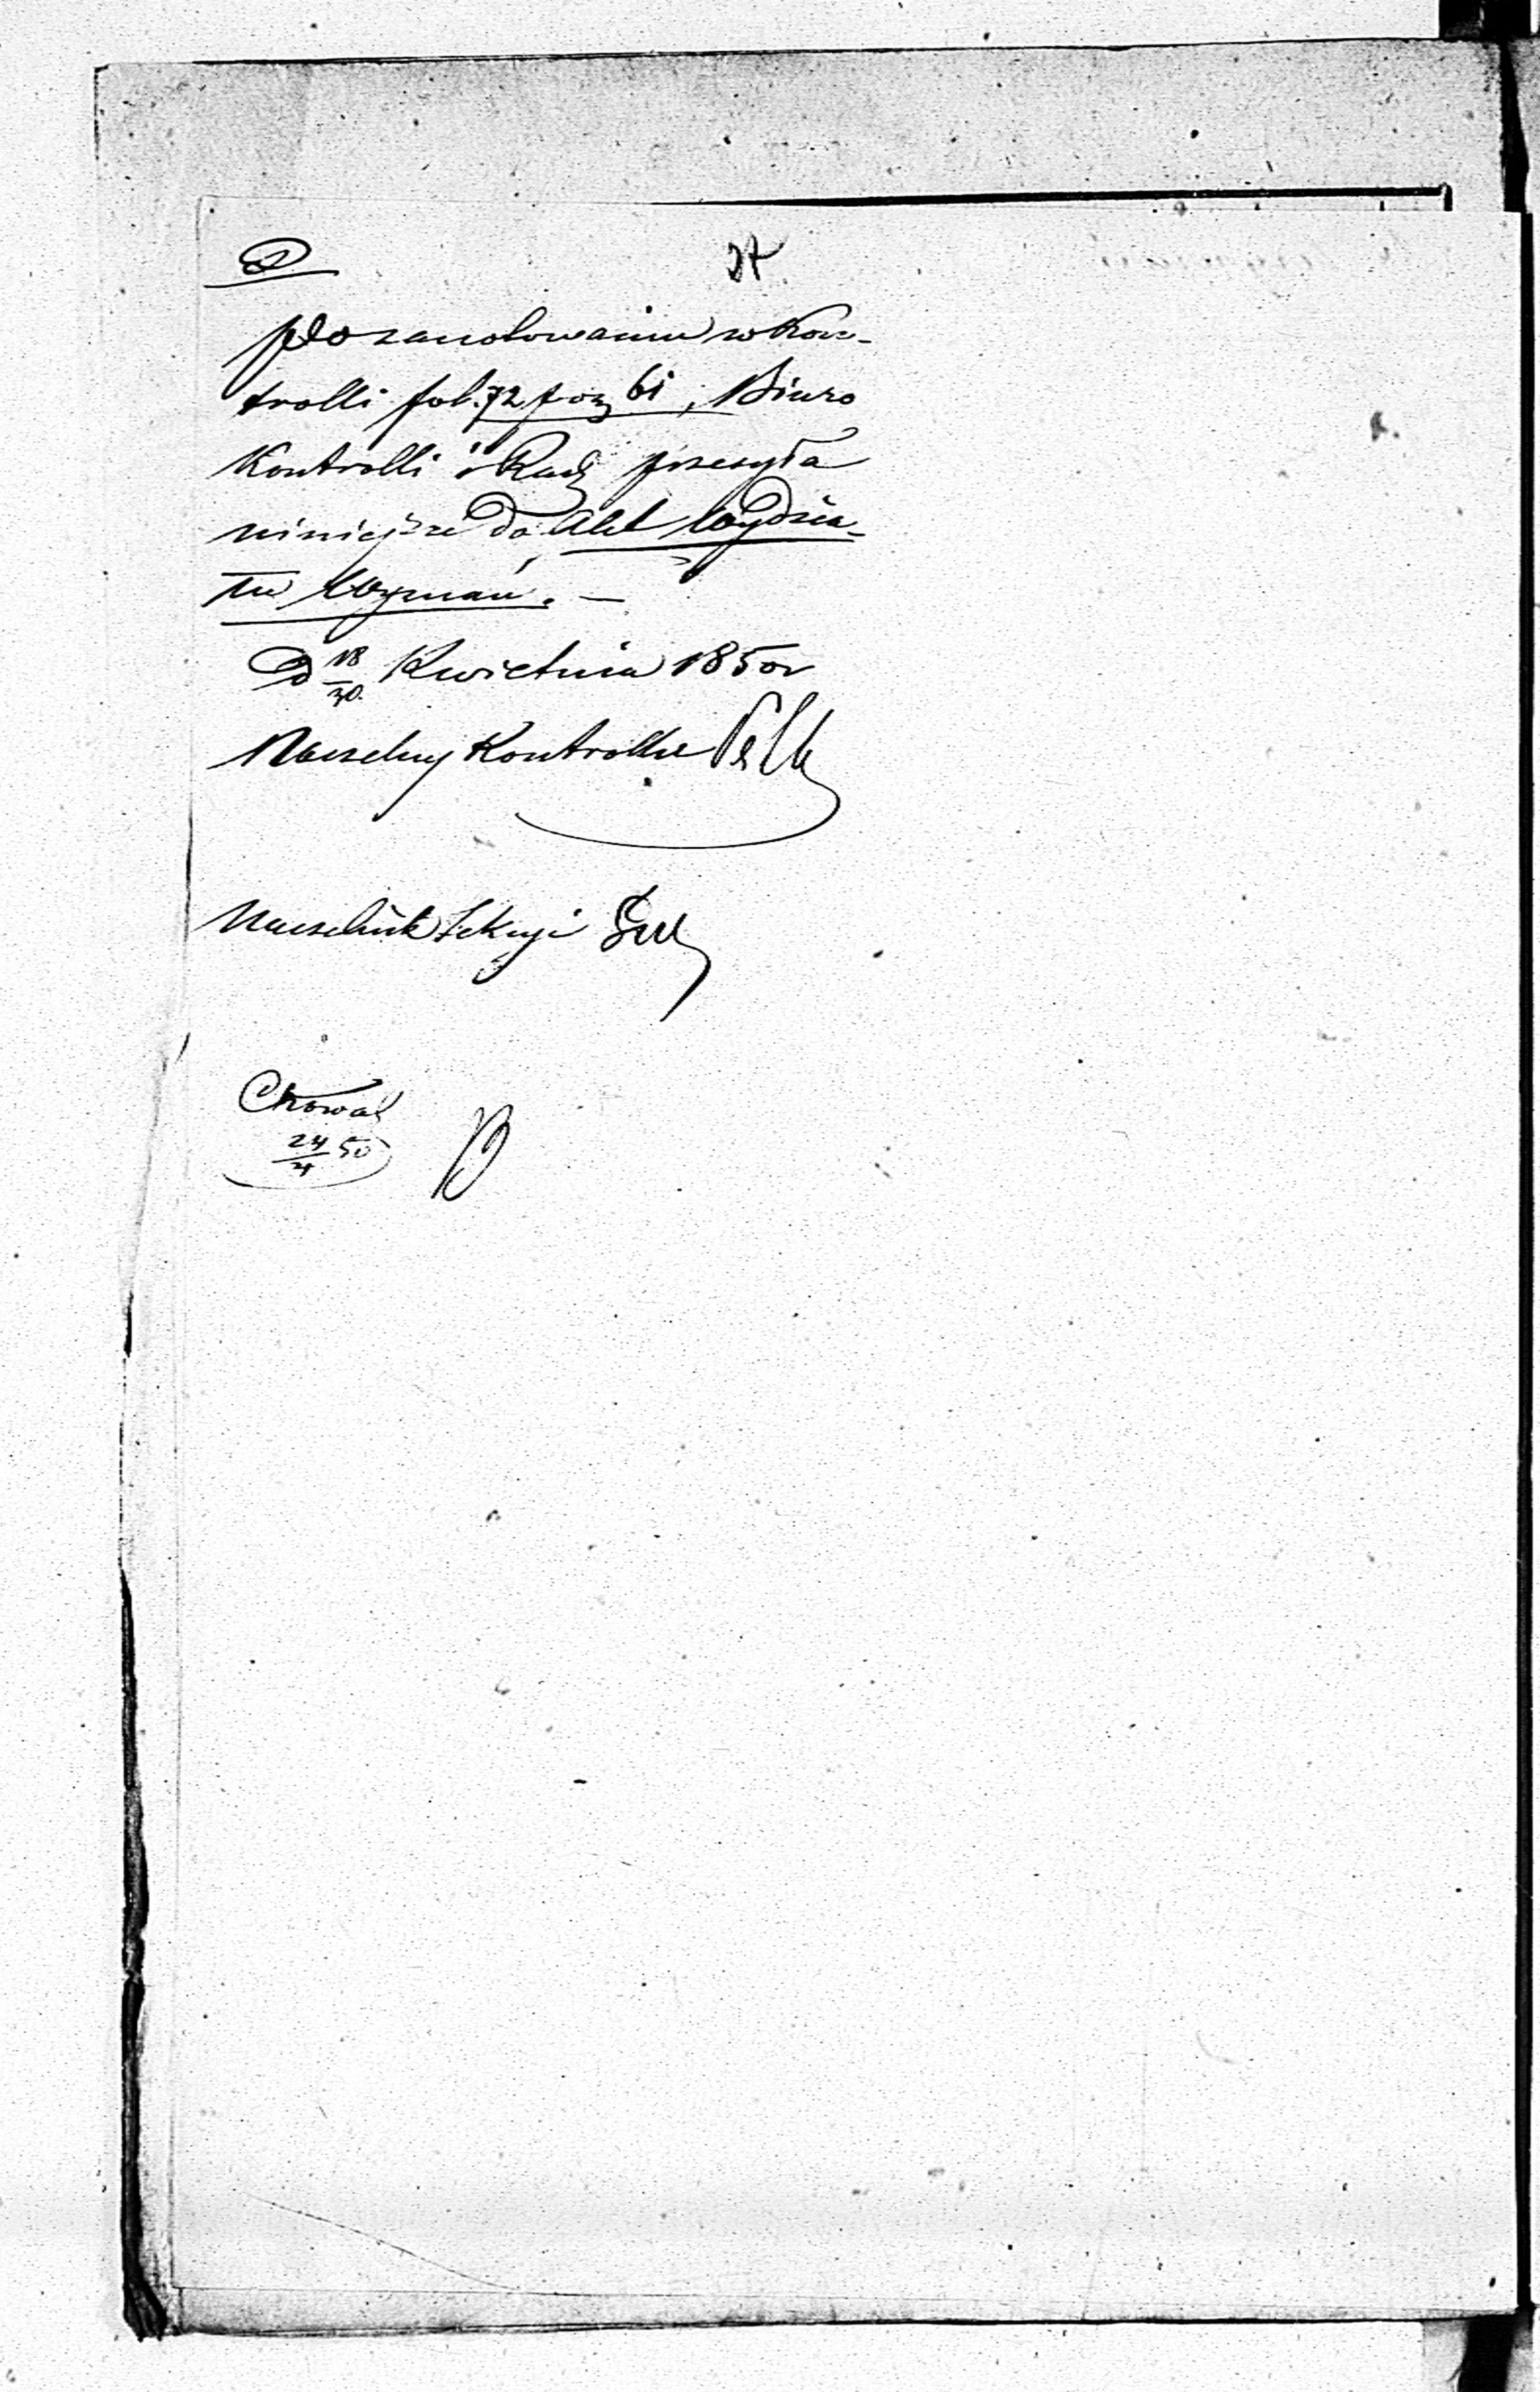 Po zanotowaniu w Kon-
trolli fol. 72 poz 61, Biuro
Kontrolli i Rach przesyła
niniejsze do Akt Wydzia-
łu Wyznań. —
D 18/30 Kwietnia 1850 r
Naczelny Kontroller
Naczelnik Sekcyi
Chować
24/4 50